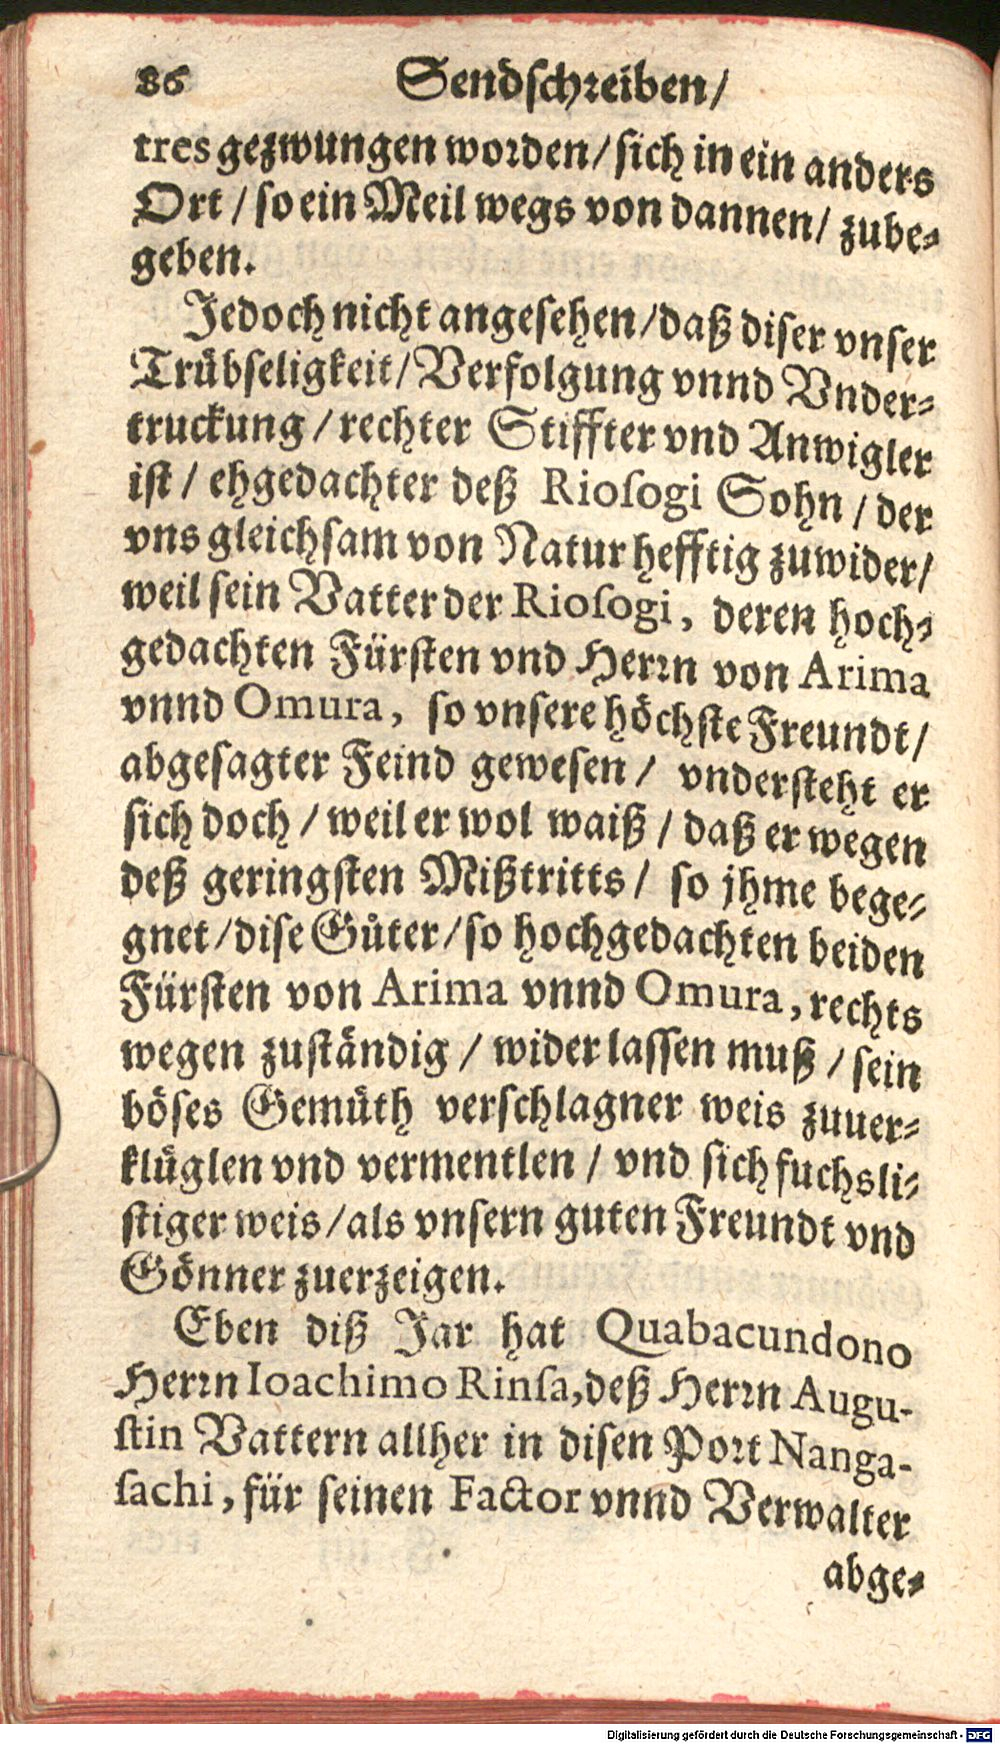 86 Sendschreiben/
tres gezwungen worden/ sich in ein anders
Ort / so ein Meil wegs von dannen/ zube-
geben.
Jedoch nicht angesehen/daß diser vnser
Trübseligkeit/Verfolgung vnnd Vnder-
truckung / rechter Stiffter vnd Anwigler
ist / ehgedachter deß Riosogi Sohn / der
vns gleichsam von Natur hefftig zuwider/
weil sein Vatter der Riosogi, deren hoch-
gedachten Fürsten vnd Herrn von Arima
vnnd Omura, so vnsere höchste Freundt/
abgesagter Feind gewesen / vndersteht er
sich doch / weil er wol waiß / daß er wegen
deß geringsten Mißtritts / so jhme bege-
gnet/dise Güter/so hochgedachten beiden
Fürsten von Arima vnnd Omura, rechts
wegen zuständig / wider lassen muß / sein
böses Gemüth verschlagner weis zuuer-
klüglen vnd vermentlen / vnd sich fuchsli-
stiger weis/als vnsern guten Freundt vnd
Gönner zuerzeigen.
Eben diß Jar hat Quabacundono
Herrn Ioachimo Rinsa,deß Herrn Augu-
stin Vattern allher in disen Port Nanga-
sachi, für seinen Factor vnnd Verwalter
abge-
Digitalisierung gefördert durch die Deutsche Forschungsgemeinschaft - DFG